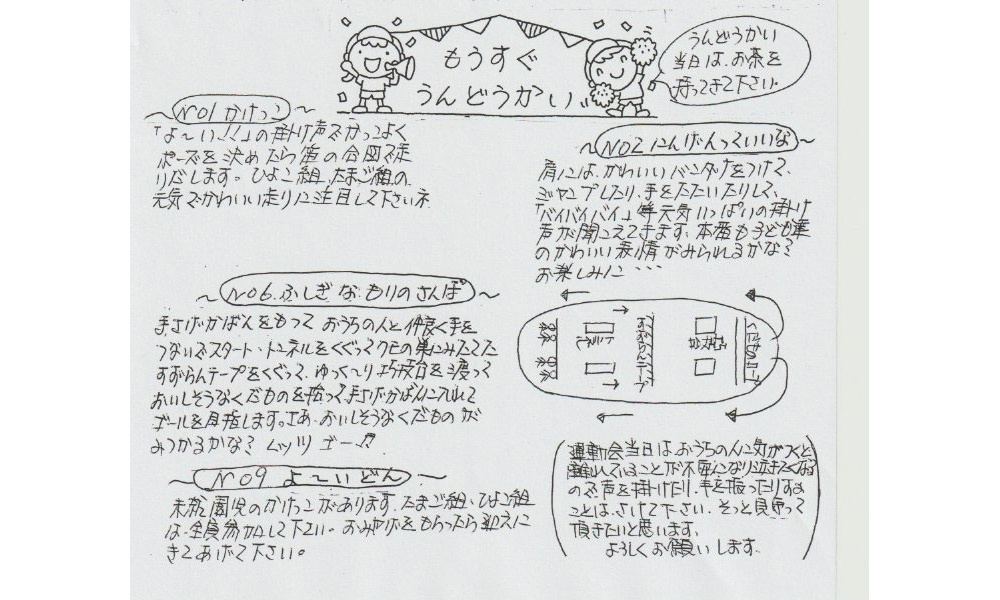 もうすぐ
うんどうかい
うんどうかい
当日は、お茶を
持ってきて下さい
～No1 かけっこ～
「よ～い!!」の掛け声でかっこよく
ポーズを決めたら笛の合図で走
りだします。ひよこ組、たまご組の
元気でかわいい走りに注目して下さいネ
～No2 にんげんっていいな～
肩には、かわいいバンダナをつけて、
ジャンプしたり、手をたたいたりして、
「バイバイバイ」等元気いっぱいの掛け
声が聞こえてきます。本番も子ども達
のかわいい表情がみられるかな?
お楽しみに・・・
～No6.ふしぎなもりのさんぽ～
手さげかばんをもって おうちの人と仲良く手を
つないでスタート・トンネルをくぐってクモの巣にみたてた
すずらんテープをくぐって、ゆっく～り巧技台を渡って
おいしそうなくだものを拾って手さげかばんに入れて
ゴールを目指します。さあ、おいしそうなくだものが
みつかるかな? レッツ ゴー
トンネル
すずらんテープ
くだもの
～No9 よ～いどん～
未就園児のかけっこがあります。たまご組、ひよこ組
は、全員参加して下さい。おみやげをもらったら迎えに
きてあげて下さい。
運動会当日は、おうちの人に気がつくと
離れていることが不安になり泣きたくなる
ので、声を掛けたり、手を振ったりする
ことは、さけて下さい。そっと見守って
頂きたいと思います。
よろしくお願いします。